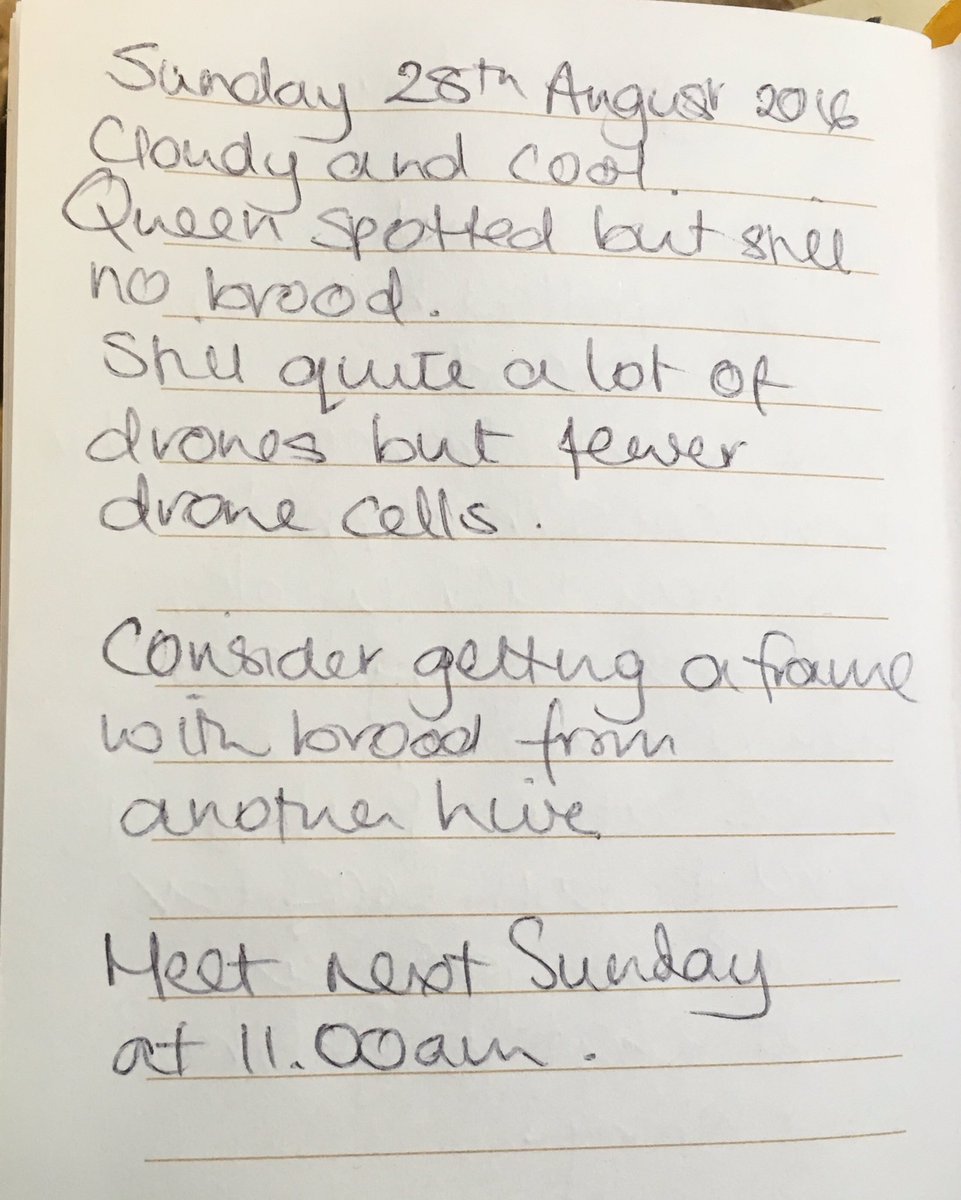 Sunday 28th August 2016
Cloudy and cool.
Queen spotted but still
no brood.
Still quite a lot of
drones but fewer
drone cells.
Consider getting a frame
with brood from
another hive
Meet next Sunday
at 11.00am.